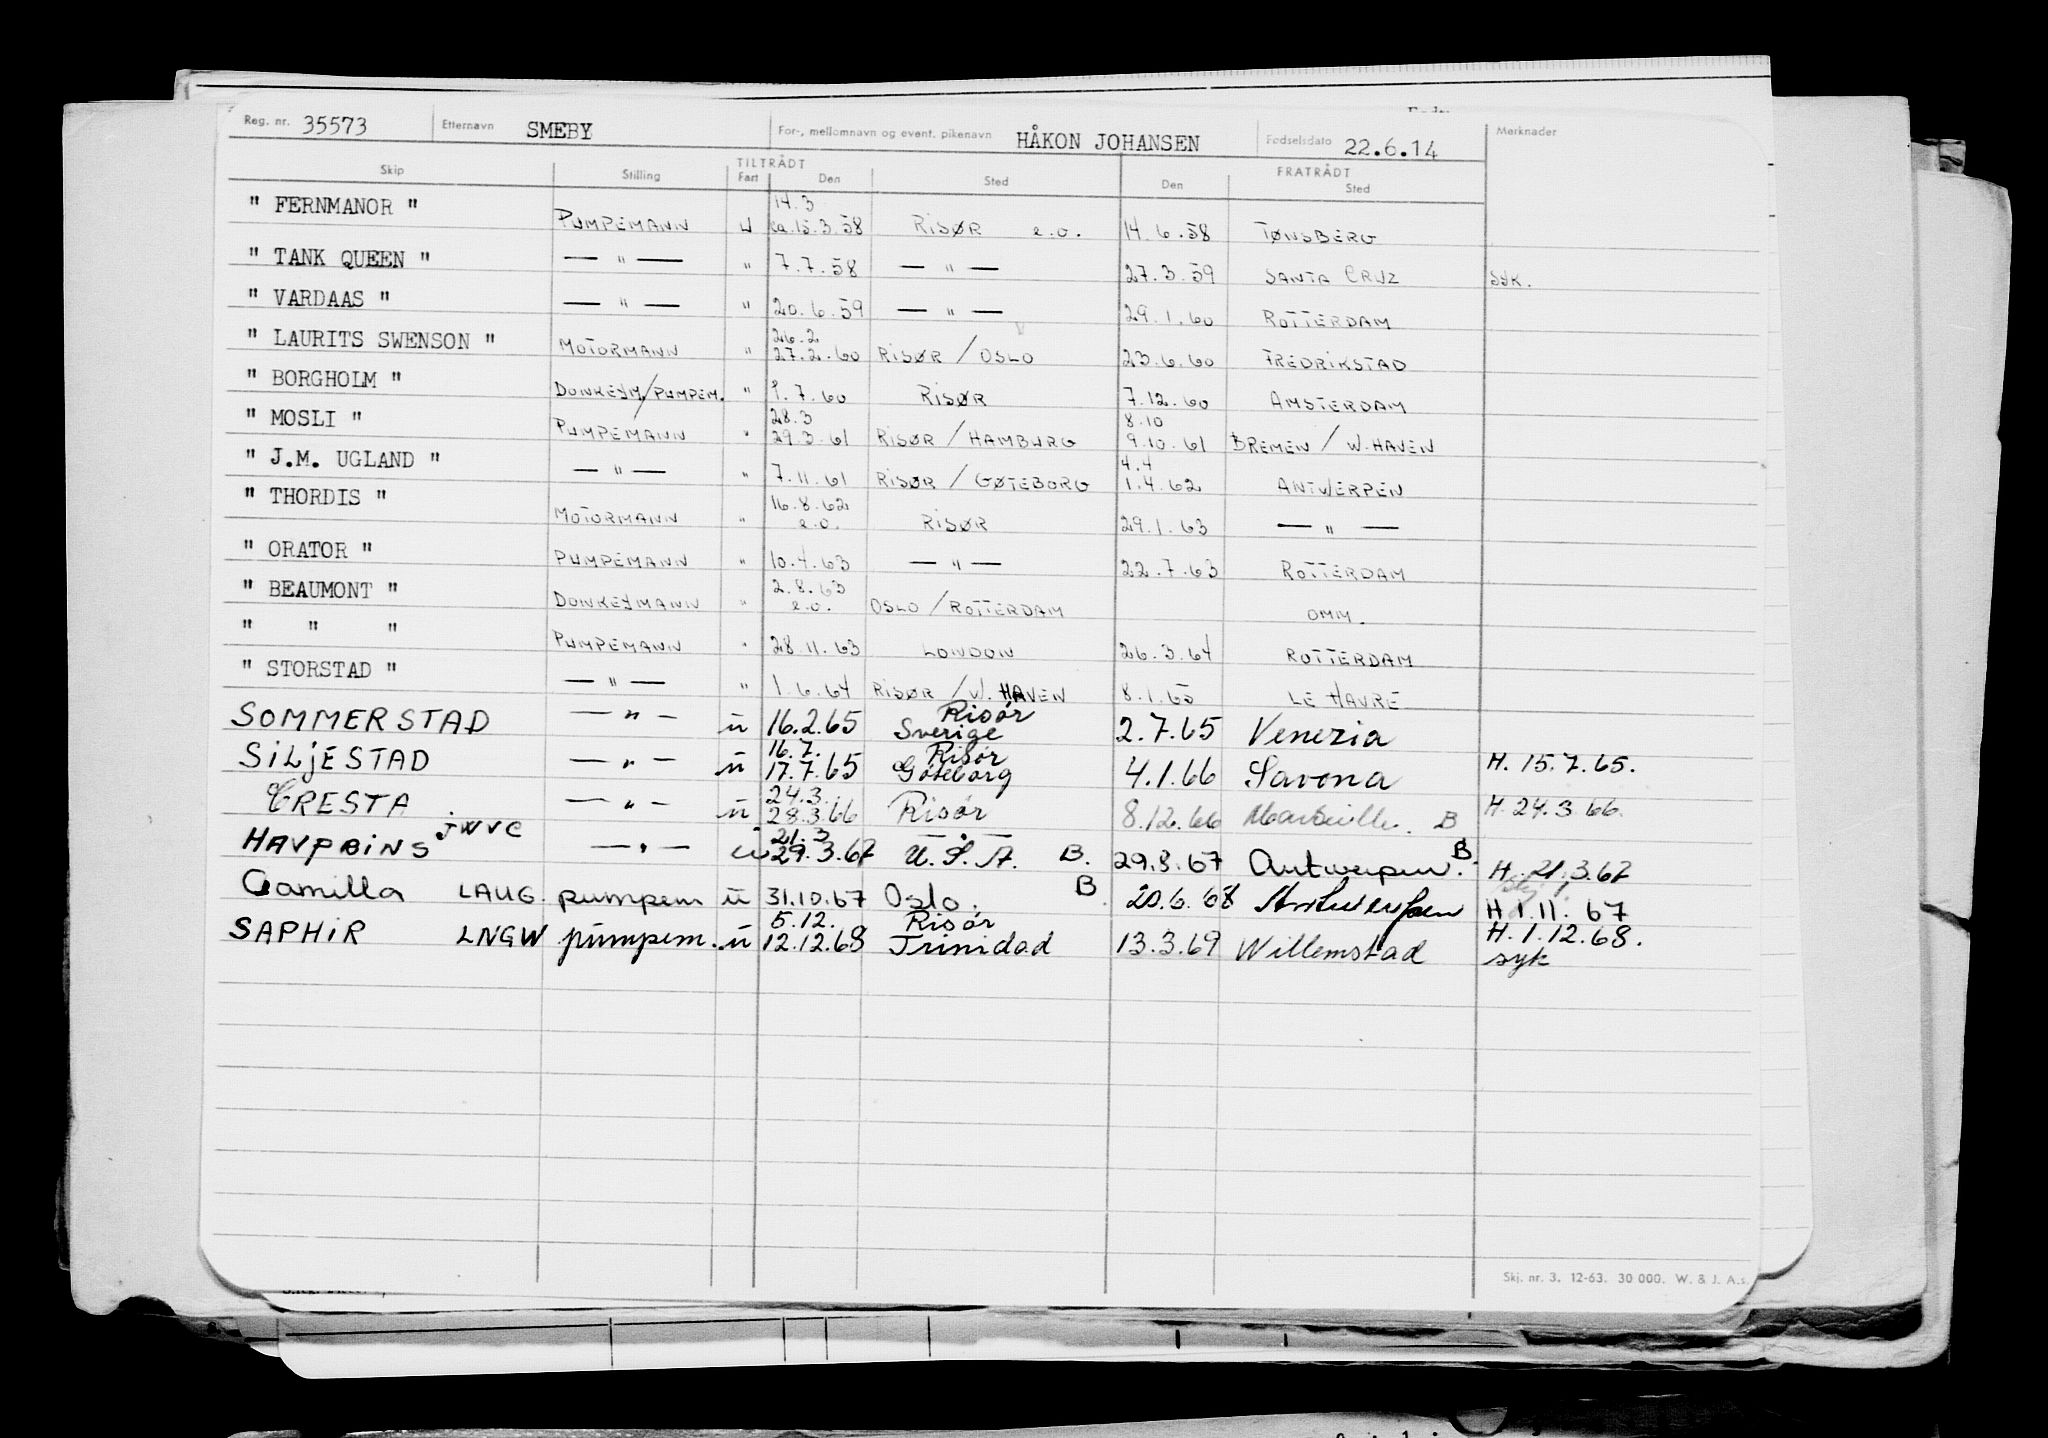 Reg. nr. 35573 Etternavn SMEBY For-, mellomnavn og event. pikenavn HÅKON JOHANSEN Fødselsdato 22.6.14 Merknader
TILTRÅDT FRATRÅDT
Skip Stilling Fart Den Sted Den Sted
14.3
" FERNMANOR " PUMPEMANN U ca.15.3.58 RISØR e.o. 14.6.58 TØNSBERG
" TANK QUEEN " — " — " 7.7.58 — " — 27.3.59 SANTA CRUZ SYK.
" VARDAAS " — " — " 20.6.59 — " — 29.1.60 ROTTERDAM
26.2
" LAURITS SWENSON " MOTORMANN " 27.2.60 RISØR / OSLO 23.6.60 FREDRIKSTAD
" BORGHOLM " DONKEYM/PUMPEM. " 9.7.60 RISØR 7.12.60 AMSTERDAM
28.3 8.10
" MOSLI " PUMPEMANN " 29.3.61 RISØR / HAMBURG 9.10.61 BREMEN / W.HAVEN
4.4
" J.M. UGLAND " — " — " 7.11.61 RISØR / GØTEBORG 1.4.62 ANTWERPEN
16.8.62
" THORDIS " MOTORMANN " e.o. RISØR 29.1.63 — " —
" ORATOR " PUMPEMANN " 10.4.63 — " — 22.7.63 ROTTERDAM
2.8.63
" BEAUMONT " DONKEYMANN " e.o. OSLO / ROTTERDAM OMM.
" " " PUMPEMANN " 28.11.63 LONDON 26.3.64 ROTTERDAM
" STORSTAD " — " — " 1.6.64 RISØR / W. HAVEN 8.1.65 LE HAVRE
Risør
SOMMERSTAD — " — u 16.2.65 Sverige 2.7.65 Venezia
16.7. Risør
SILJESTAD — " — u 17.7.65 Göteborg 4.1.66 Savona H. 15.7.65.
24.3.
CRESTA — " — u 28.3.66 Risør 8.12.66 Marseille. B H. 24.3.66.
21.3 — " —
HAVPRINS JWVC — " — u 29.3.67 U.S.A. B. 29.8.67 Antwerpen. B. H. 21.3.67
Camilla LAUG. pumpem u 31.10.67 Oslo. B 20.6.68 H 1.11. 67
5.12. Risør
SAPHIR LNGW pumpem. u 12.12.68 Trinidad 13.3.69 Willemstad H. 1.12.68.
syk
Skj. nr. 3. 12-63. 30 000. W. & J. A.s.